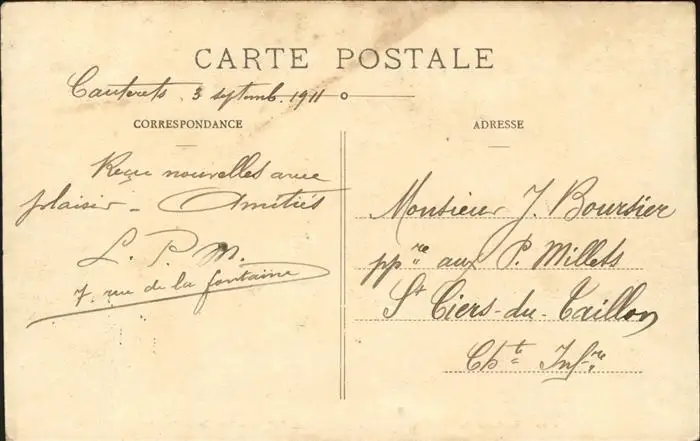 CARTE POSTALE
Cauterets, 3 septemb. 1911
CORRESPONDANCE
Reçu nouvelles avec
plaisir - Amitiés
L. P. M.
7. rue de la fontaine
ADRESSE
Monsieur J. Boursier
ppre aux P. Millets
St Ciers-du-Taillon
Chte Infre